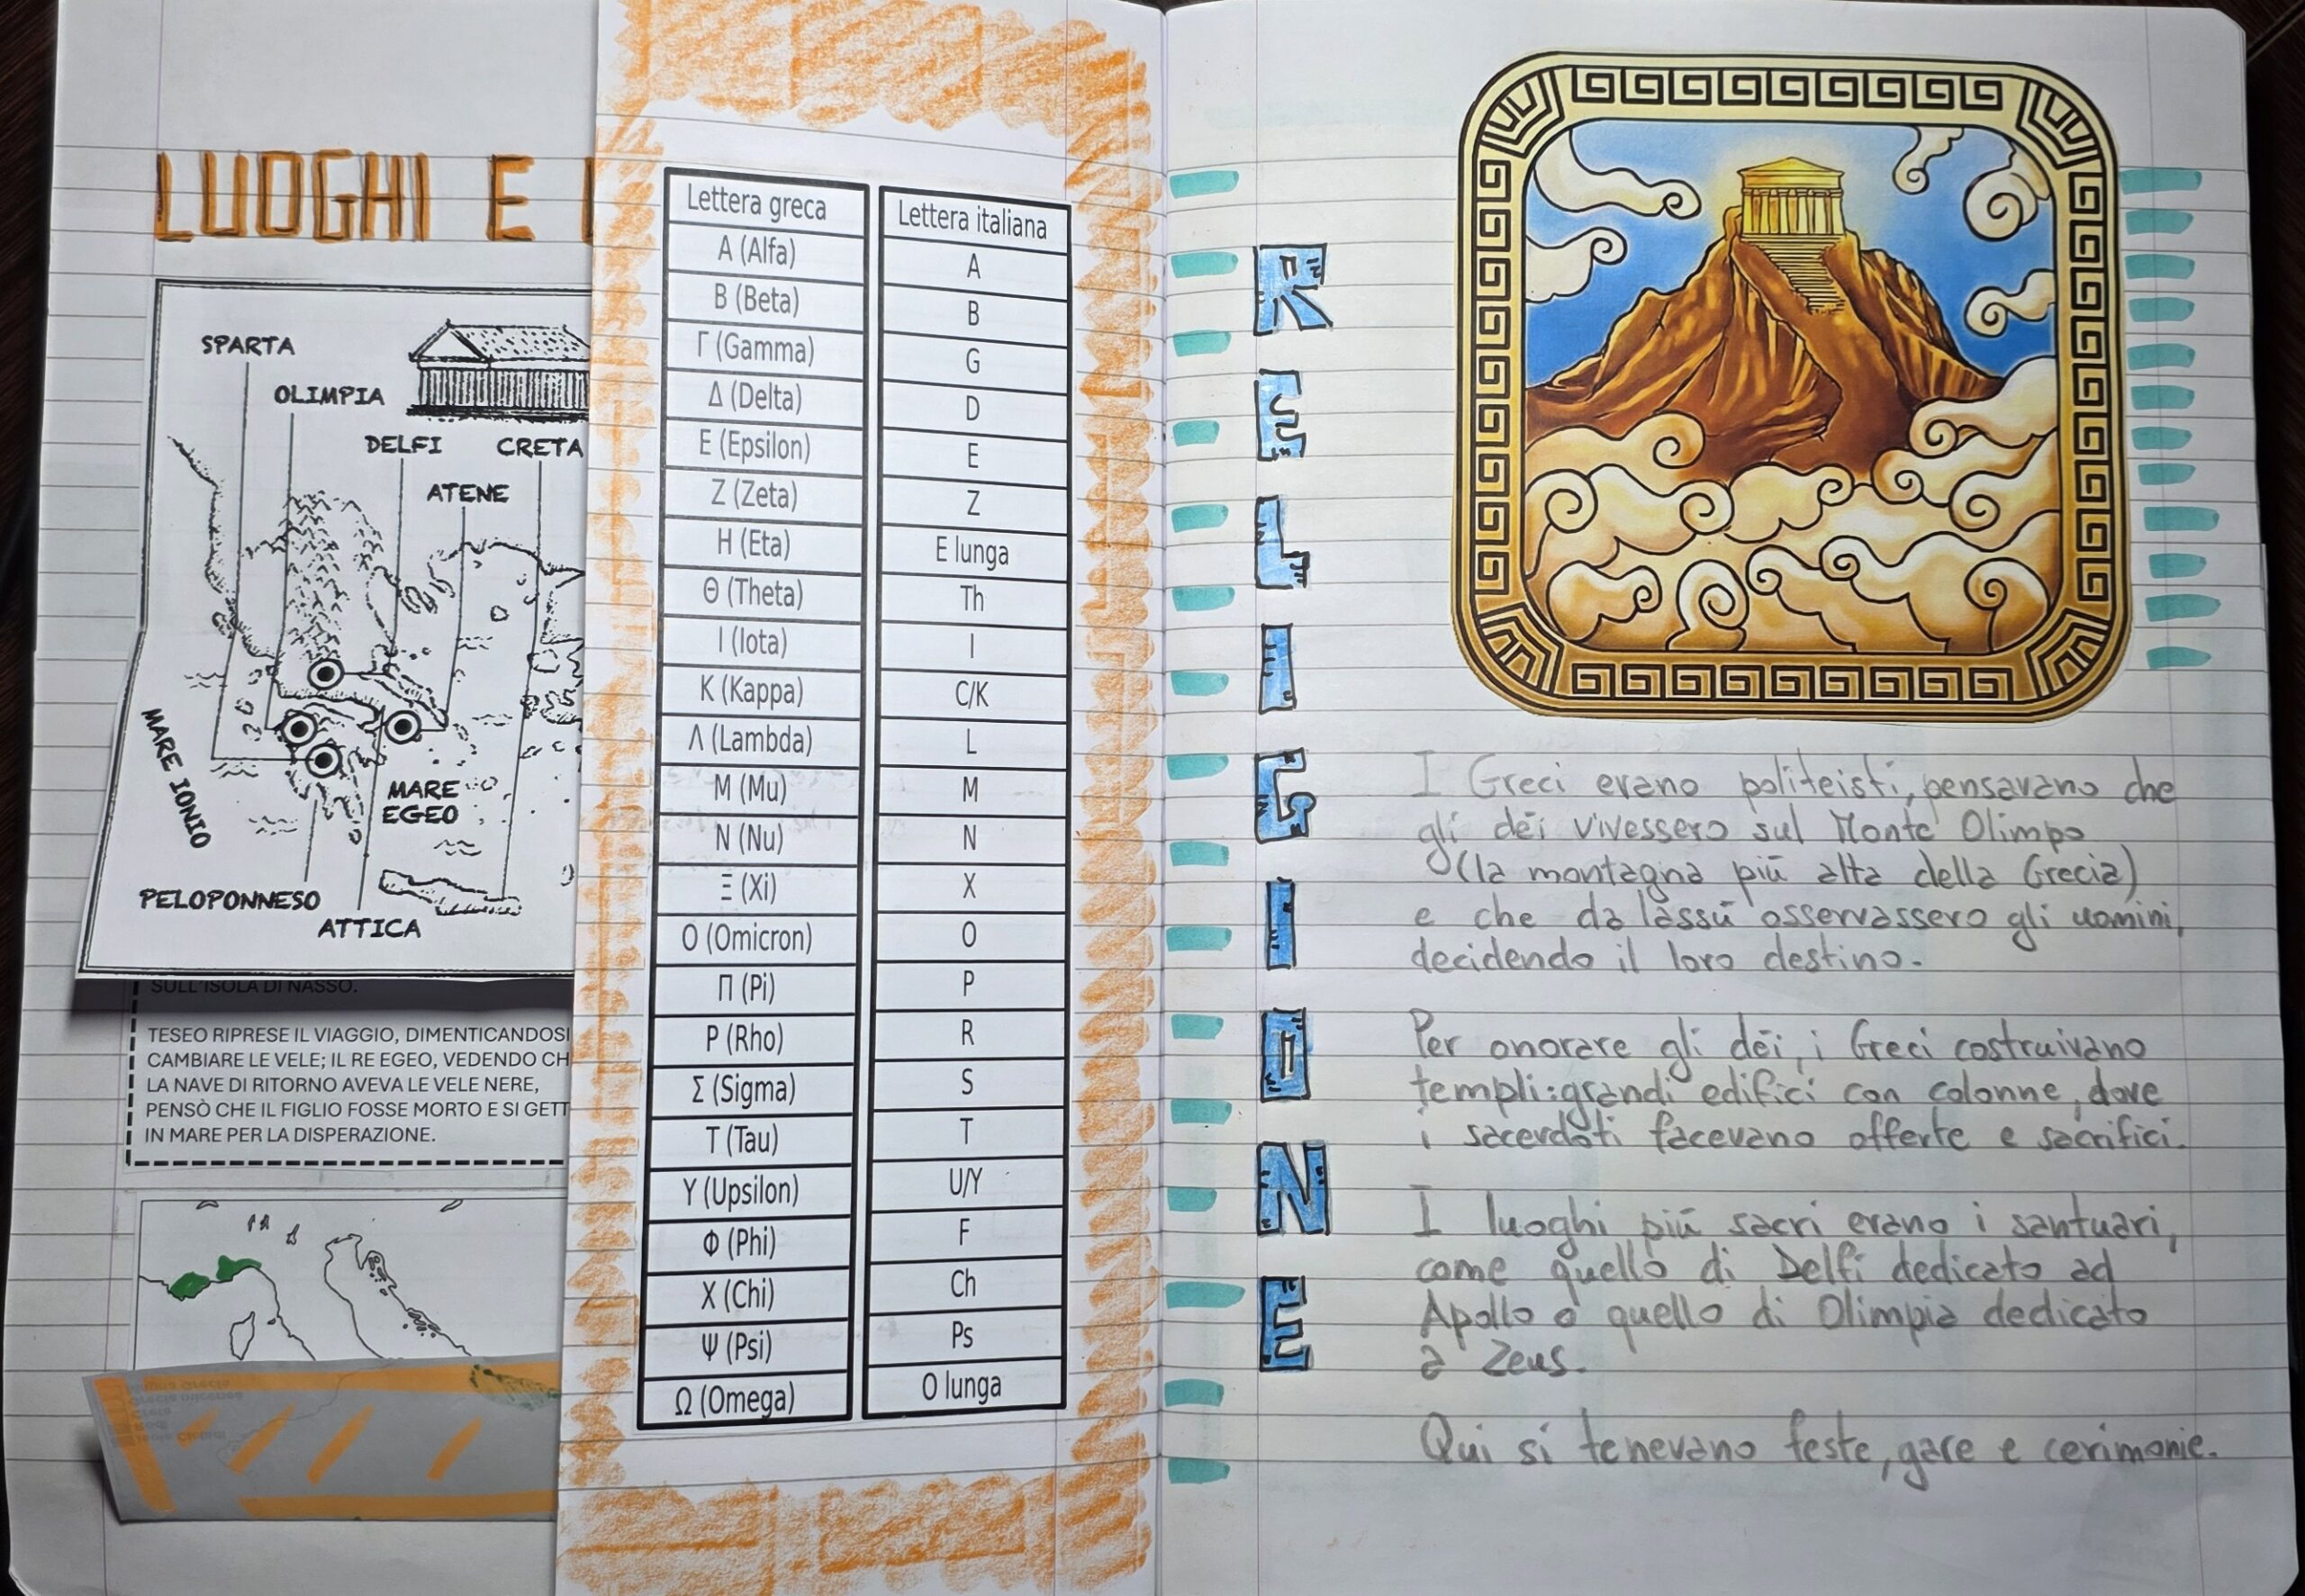 LUOGHI E
SPARTA
OLIMPIA
DELFI
CRETA
ATENE
MARE IONIO
MARE
EGEO
PELOPONNESO
ATTICA
SULL'ISOLA DI NASSO.
TESEO RIPRESE IL VIAGGIO, DIMENTICANDOSI
CAMBIARE LE VELE; IL RE EGEO, VEDENDO CH
LA NAVE DI RITORNO AVEVA LE VELE NERE,
PENSÒ CHE IL FIGLIO FOSSE MORTO E SI GETT
IN MARE PER LA DISPERAZIONE.
Lettera greca Lettera italiana
Α (Alfa) A
Β (Beta) B
Γ (Gamma) G
Δ (Delta) D
Ε (Epsilon) E
Ζ (Zeta) Z
Η (Eta) E lunga
Θ (Theta) Th
Ι (Iota) I
Κ (Kappa) C/K
Λ (Lambda) L
Μ (Mu) M
Ν (Nu) N
Ξ (Xi) X
Ο (Omicron) O
Π (Pi) P
Ρ (Rho) R
Σ (Sigma) S
Τ (Tau) T
Υ (Upsilon) U/Y
Φ (Phi) F
Χ (Chi) Ch
Ψ (Psi) Ps
Ω (Omega) O lunga
RELIGIONE
I Greci erano politeisti, pensavano che
gli dèi vivessero sul Monte Olimpo
(la montagna più alta della Grecia)
e che da lassù osservassero gli uomini,
decidendo il loro destino.
Per onorare gli dèi, i Greci costruivano
templi: grandi edifici con colonne, dove
i sacerdoti facevano offerte e sacrifici.
I luoghi più sacri erano i santuari,
come quello di Delfi dedicato ad
Apollo o quello di Olimpia dedicato
a Zeus.
Qui si tenevano feste, gare e cerimonie.